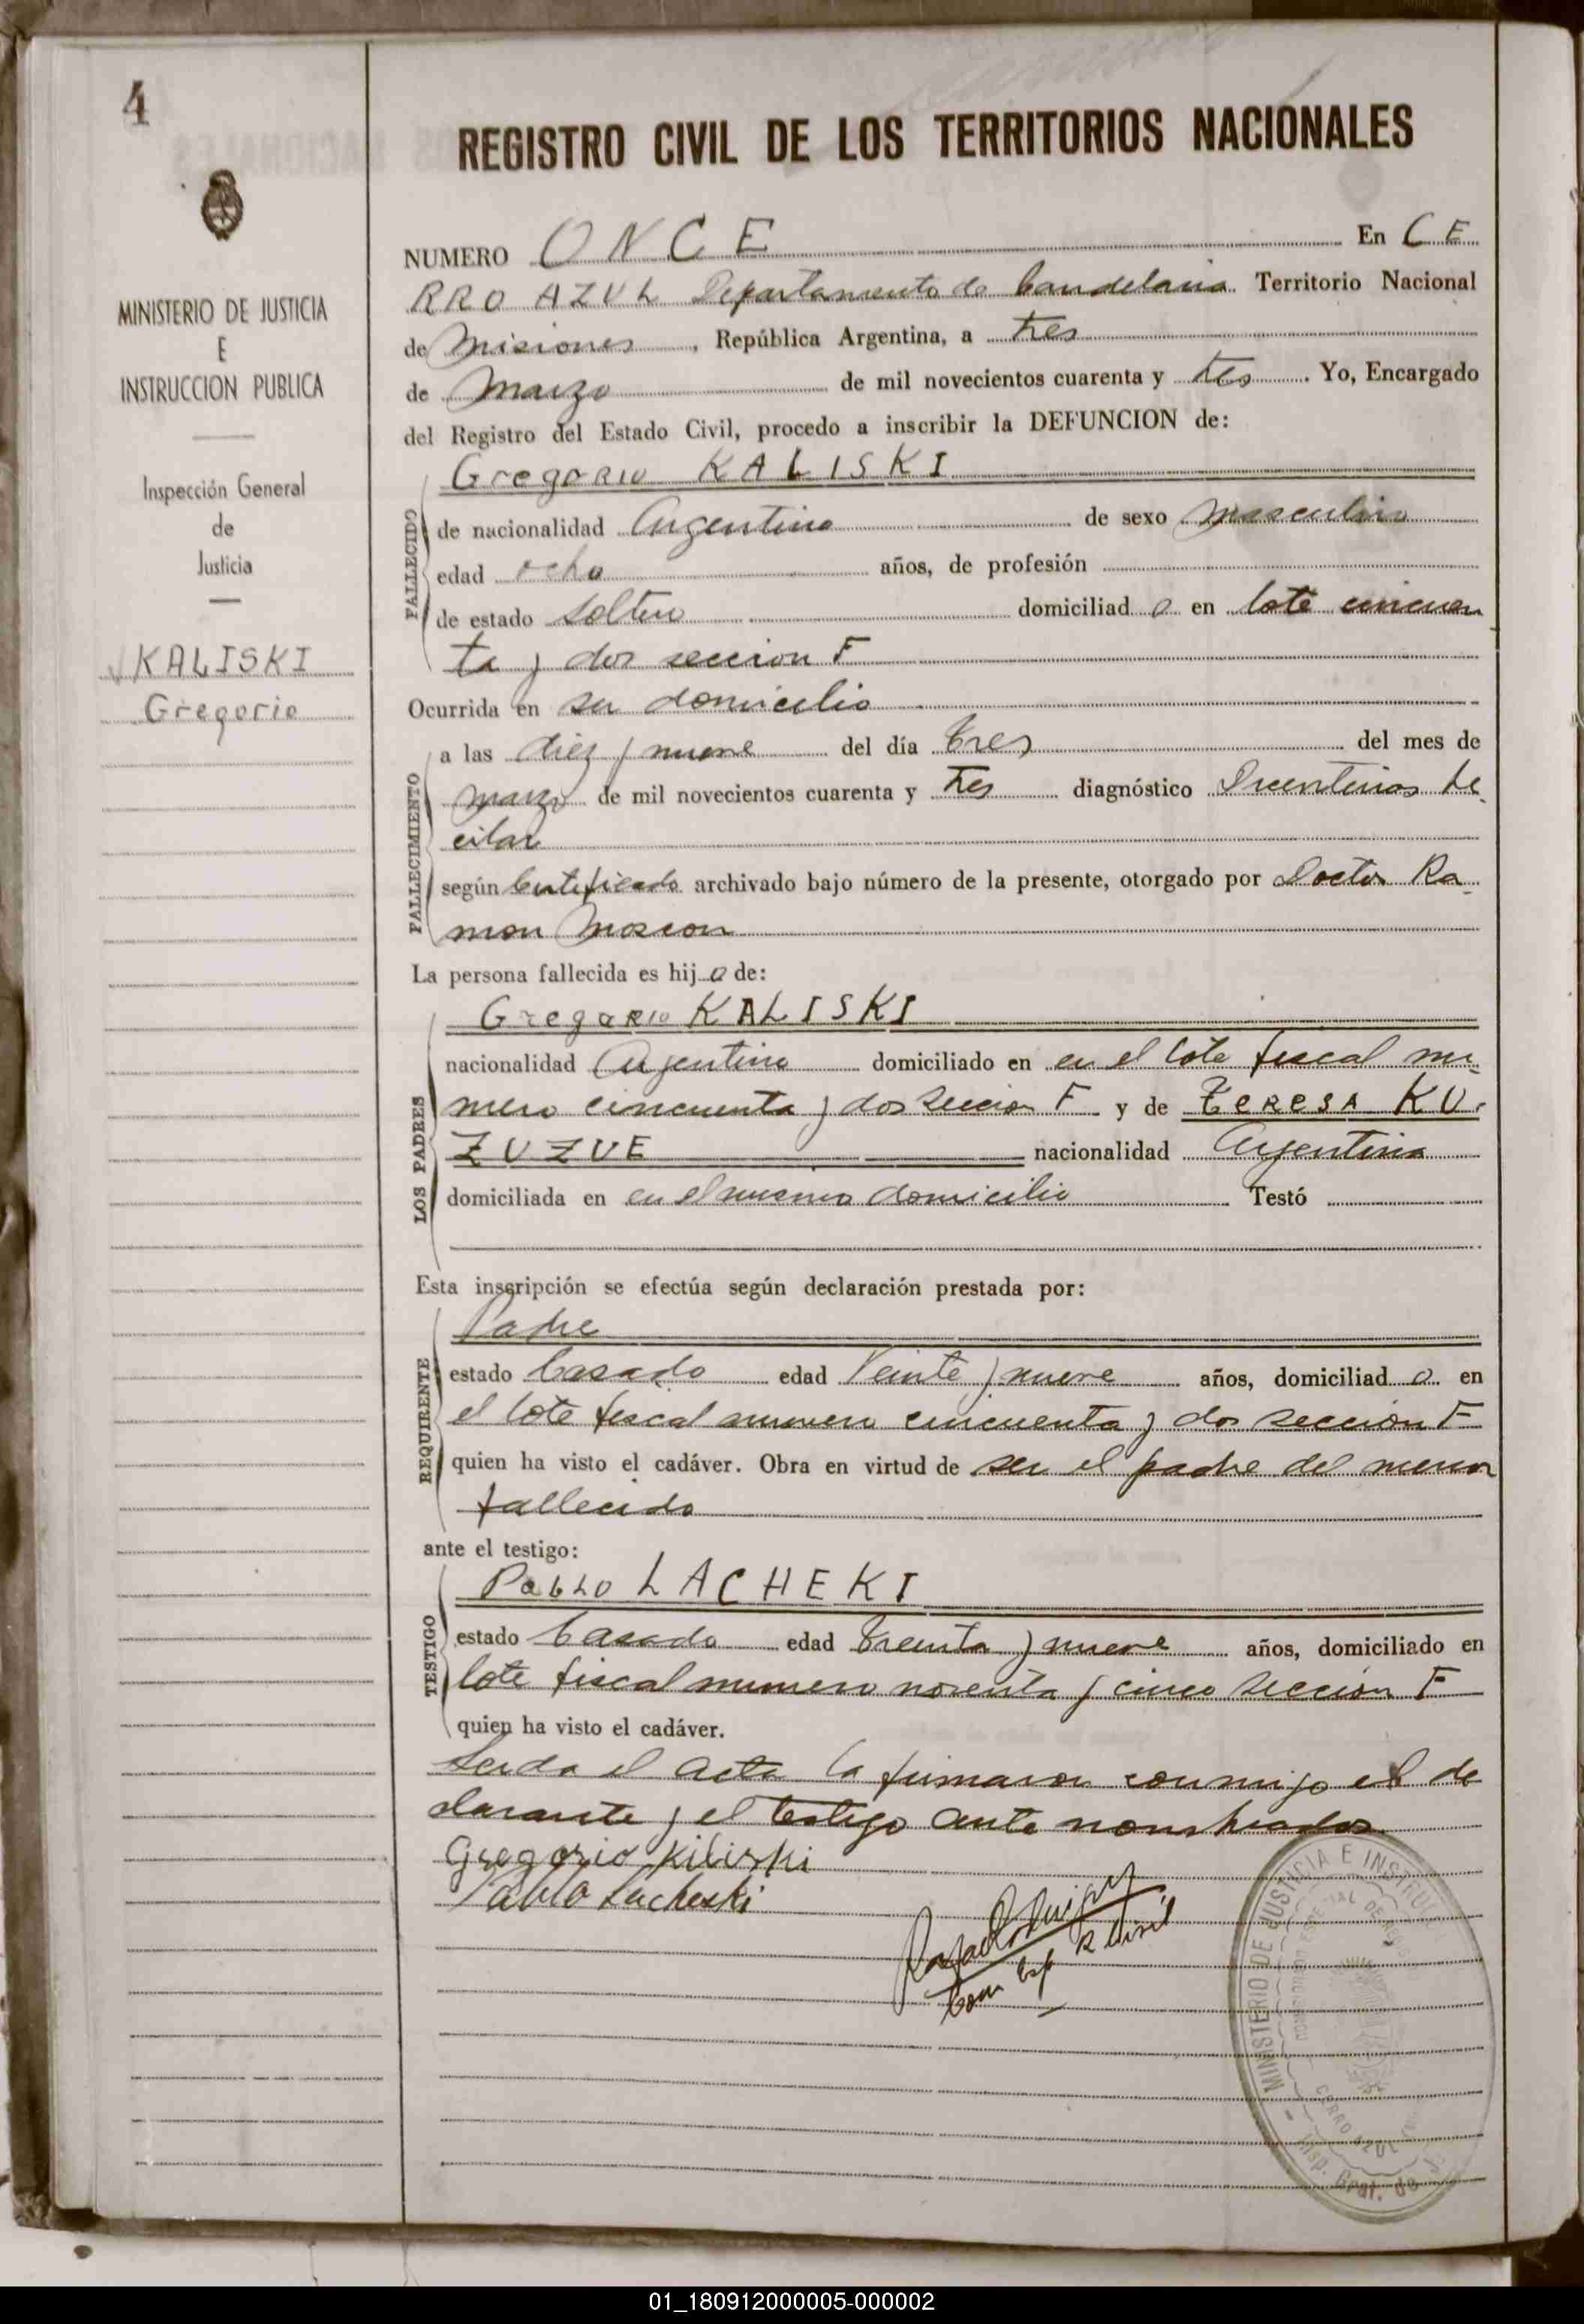 4
REGISTRO CIVIL DE LOS TERRITORIOS NACIONALES
MINISTERIO DE JUSTICIA
E
INSTRUCCION PUBLICA
Inspección General
de
Justicia
KALISKI
Gregorio
NUMERO ONCE En CE
RRO AZUL Departamento de Candelaria Territorio Nacional
de Misiones, República Argentina, a tres
de Marzo de mil novecientos cuarenta y tres. Yo, Encargado
del Registro del Estado Civil, procedo a inscribir la DEFUNCION de:
Gregorio KALISKI
FALLECIDO
de nacionalidad Argentino de sexo masculino
edad ocho años, de profesión
de estado soltero domiciliad o en lote cincuen
ta y dos seccion F
Ocurrida en su domicilio
FALLECIMIENTO
a las diez y nueve del día tres del mes de
marzo de mil novecientos cuarenta y tres diagnóstico
cilar
según Certificado archivado bajo número de la presente, otorgado por Doctor Ra-
mon
La persona fallecida es hij o de:
Gregorio KALISKI
LOS PADRES
nacionalidad Argentino domiciliado en en el lote fiscal nu-
mero cincuenta y dos Seccion F y de TERESA KU-
ZUZUE nacionalidad Argentina
domiciliada en en el mismo domicilio Testó
Esta inscripción se efectúa según declaración prestada por:
Padre
REQUIRENTE
estado Casado edad Veinte y nueve años, domiciliad o en
el lote fiscal numero cincuenta y dos seccion F
quien ha visto el cadáver. Obra en virtud de ser el padre del menor
fallecido
ante el testigo:
Pablo LACHEKI
TESTIGO
estado Casado edad treinta y nueve años, domiciliado en
lote fiscal numero noventa y cinco seccion F
quien ha visto el cadáver.
Leida el acta la firmaron conmigo el de
clarante y el testigo ante nombrados
Gregorio Kiliski
Pablo Lacheski
MINISTERIO DE JUSTICIA E INSTRUC
CERRO AZUL
Insp. Gral. de
01_180912000005-000002